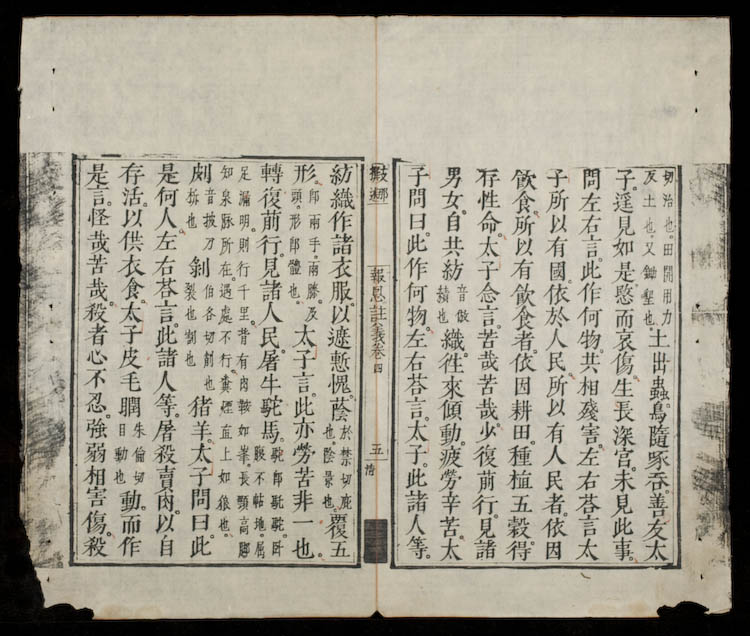 切治也。田間用力
反土也。又鋤墾也。
土出蟲。鳥隨啄吞。善友太
子。遥見如是愍而哀傷。生長深宮。未見此事。
問左右言。此作何物共相殘害。左右荅言太
子所以有國依於人民。所以有人民者。依因
飲食。所以有飲食者。依因耕田。種植五穀。得
存性命。太子念言。苦哉苦哉。少復前行。見諸
男女。自共紡
音倣
績也
織。徃來傾動。疲勞辛苦太
子問曰。此作何物。左右荅言。太子。此諸人等。
報恩註義卷四
五
情
紡織作諸衣服。以遮慙愧。蔭
於禁切庇
也。陰景也。
覆五
形。
卽兩手。兩膝及
頭。形卽體也。
太子言。此亦勞苦非一也。
轉復前行。見諸人民。屠牛駝馬。
駝卽駞駝。卧
腹不帖地。屈
足漏明。則行千里。背有肉鞍如峯。長頸高脚
知泉脉所在。遇處不行。糞煙直上如狼也。
㓟
音披刀
柝也
剝
伯各切削也
裂也割也
猪羊。太子問曰。此
是何人。左右荅言。此諸人等。屠殺賣肉。以自
存活。以供衣食。太子皮毛瞤
朱倫切
目動也
動。而作
是言。怪哉苦哉。殺者心不忍。強弱相害傷。殺